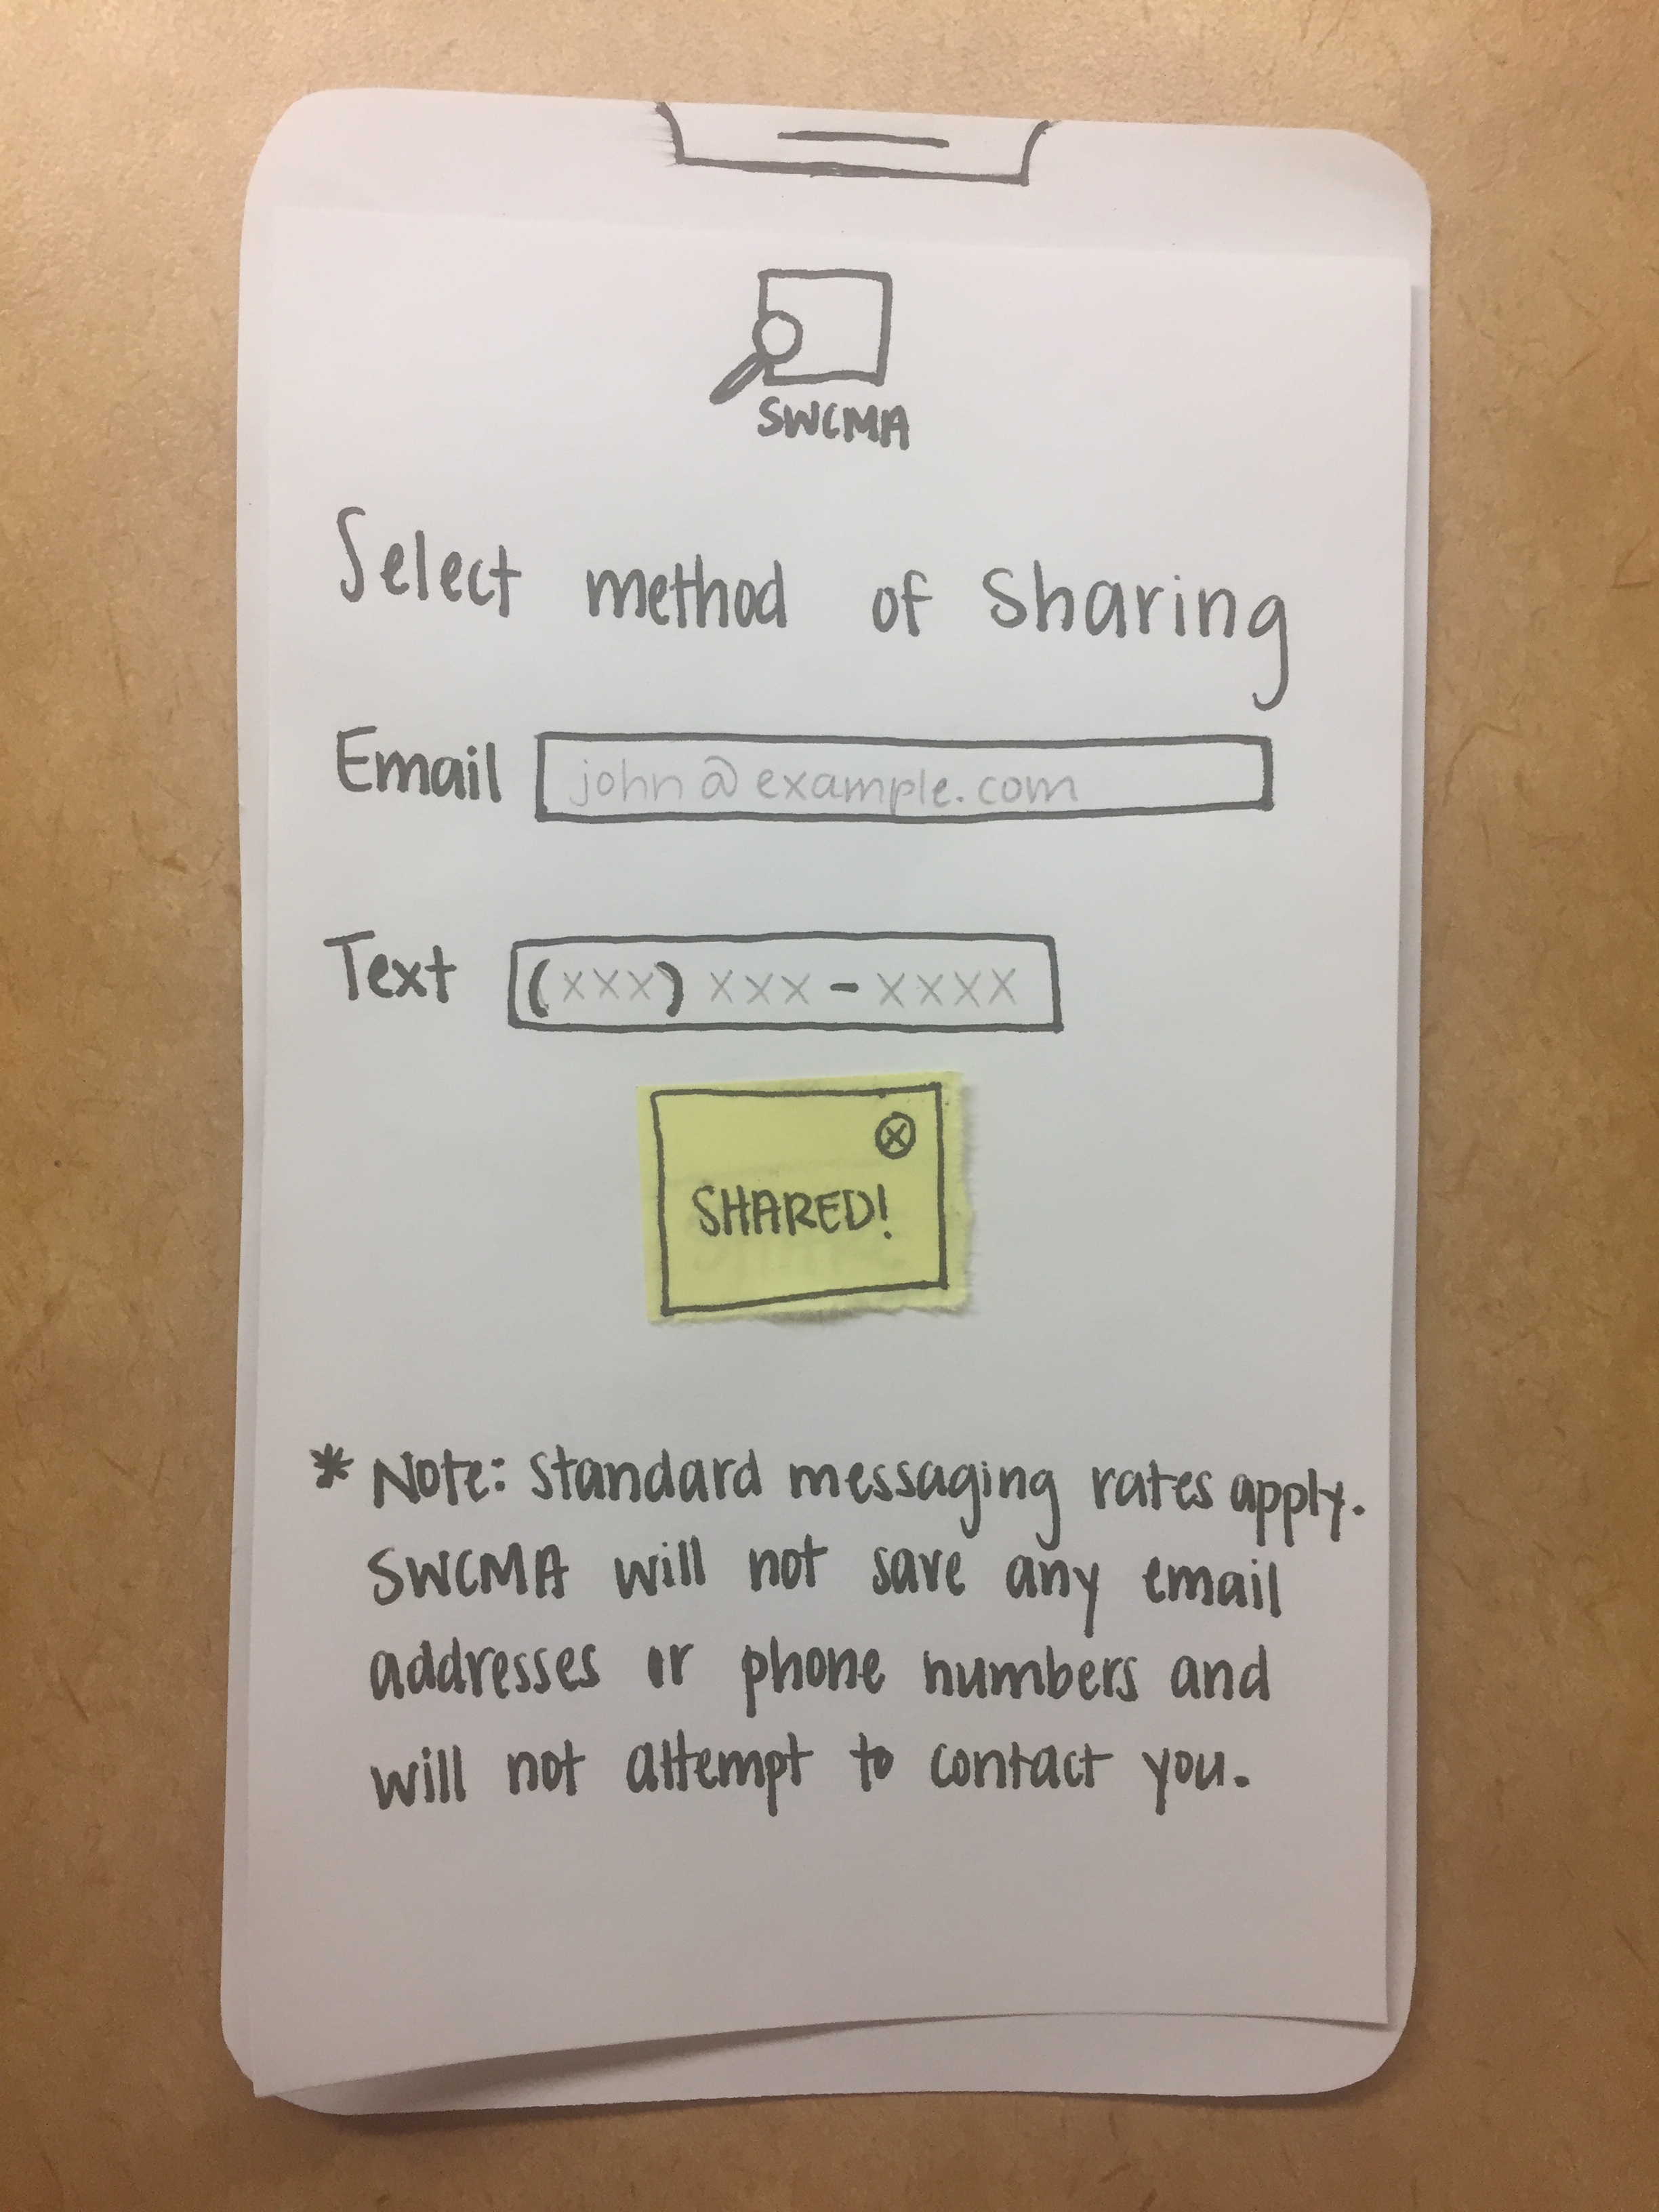 SWCMA
Select method of sharing
Email john@example.com
Text (xxx) xxx - xxxx
SHARED!
* Note: standard messaging rates apply.
SWCMA will not save any email
addresses or phone numbers and
will not attempt to contact you.